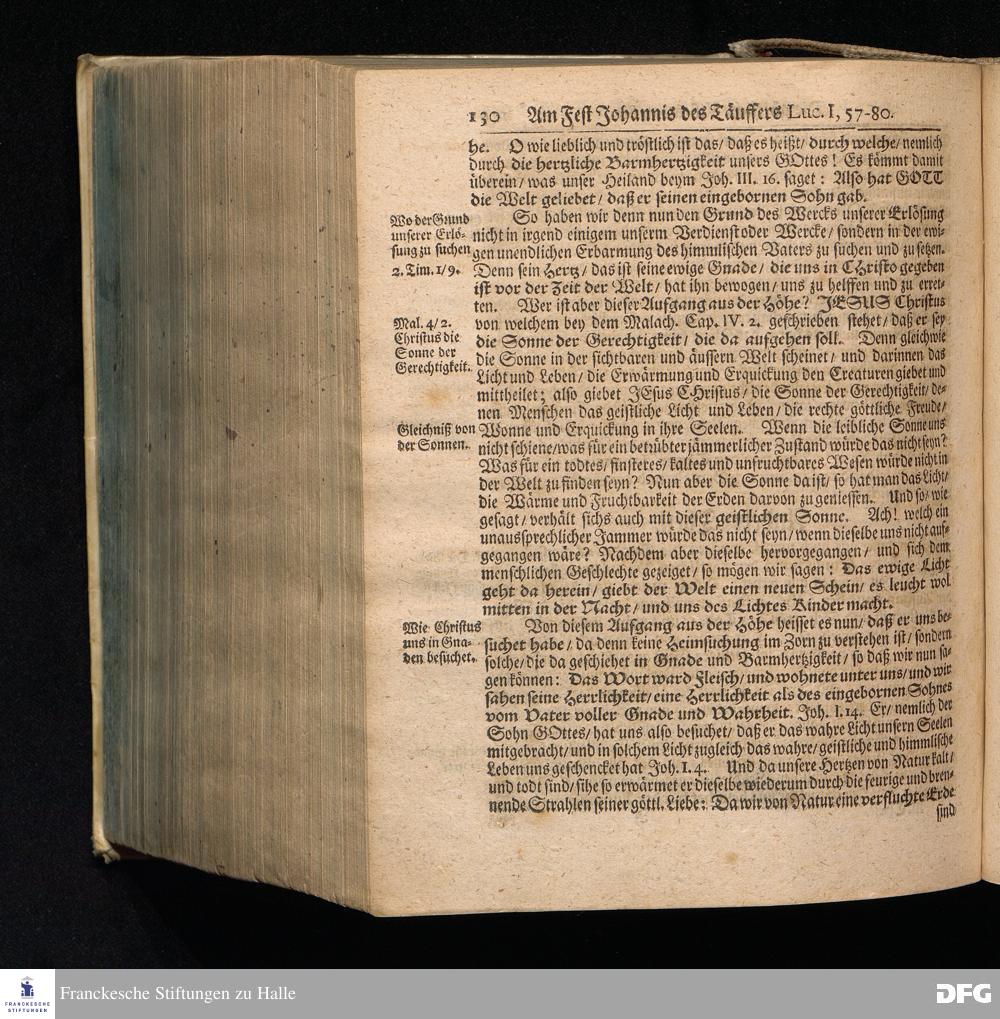 130 Am Fest Johannis des Täuffers Luc. I, 57-80.
he. O wie lieblich und tröstlich ist das/ daß es heißt/ durch welche/ nemlich
durch die hertzliche Barmhertzigkeit unsers GOttes! Es kömmt damit
überein/ was unser Heiland beym Joh. III. 16. saget: Also hat GOTT
die Welt geliebet/ daß er seinen eingebornen Sohn gab.
Wo der Grund
unserer Erlö-
sung zu suchen
2. Tim. 1/9.
So haben wir denn nun den Grund des Wercks unserer Erlösung
nicht in irgend einigem unserm Verdienst oder Wercke/ sondern in der ewi-
gen unendlichen Erbarmung des himmlischen Vaters zu suchen und zu setzen.
Denn sein Hertz/ das ist seine ewige Gnade/ die uns in CHristo gegeben
ist vor der Zeit der Welt/ hat ihn bewogen/ uns zu helffen und zu erret-
ten. Wer ist aber dieser Aufgang aus der Höhe? JESUS Christus
Mal. 4/2.
Christus die
Sonne der
Gerechtigkeit.
von welchem bey dem Malach. Cap. IV. 2. geschrieben stehet/ daß er sey
die Sonne der Gerechtigkeit/ die da aufgehen soll. Denn gleichwie
die Sonne in der sichtbaren und äussern Welt scheinet/ und darinnen das
Licht und Leben/ die Erwärmung und Erquickung den Creaturen giebet und
mittheilet; also giebet JEsus CHristus/ die Sonne der Gerechtigkeit/ de-
nen Menschen das geistliche Licht und Leben/ die rechte göttliche Freude/
Gleichniß von
der Sonnen.
Wonne und Erquickung in ihre Seelen. Wenn die leibliche Sonne uns
nicht schiene/ was für ein betrübter jämmerlicher Zustand würde das nicht seyn?
Was für ein todtes/ finsteres/ kaltes und unfruchtbares Wesen würde nicht in
der Welt zu finden seyn? Nun aber die Sonne da ist/ so hat man das Licht/
die Wärme und Fruchtbarkeit der Erden darvon zu geniessen. Und so/ wie
gesagt/ verhält sichs auch mit dieser geistlichen Sonne. Ach! welch ein
unaussprechlicher Jammer würde das nicht seyn/ wenn dieselbe uns nicht auf-
gegangen wäre? Nachdem aber dieselbe hervorgegangen/ und sich dem
menschlichen Geschlechte gezeiget/ so mögen wir sagen: Das ewige Licht
geht da herein/ giebt der Welt einen neuen Schein/ es leucht wol
mitten in der Nacht/ und uns des Lichtes Kinder macht.
Wie Christus
uns in Gna-
den besuchet.
Von diesem Aufgang aus der Höhe heisset es nun/ daß er uns be-
suchet habe/ da denn keine Heimsuchung im Zorn zu verstehen ist/ sondern
solche/ die da geschiehet in Gnade und Barmhertzigkeit/ so daß wir nun sa-
gen können: Das Wort ward Fleisch/ und wohnete unter uns/ und wir
sahen seine Herrlichkeit/ eine Herrlichkeit als des eingebornen Sohnes
vom Vater voller Gnade und Wahrheit. Joh. I. 14. Er/ nemlich der
Sohn GOttes/ hat uns also besuchet/ daß er das wahre Licht unsern Seelen
mitgebracht/ und in solchem Licht zugleich das wahre/ geistliche und himmlische
Leben uns geschencket hat Joh. I. 4. Und da unsere Hertzen von Natur kalt/
und todt sind/ sihe so erwärmet er dieselbe wiederum durch die feurige und bren-
nende Strahlen seiner göttl. Liebe: Da wir von Natur eine verfluchte Erde
sind
FRANCKESCHE
STIFTUNGEN
Franckesche Stiftungen zu Halle
DFG